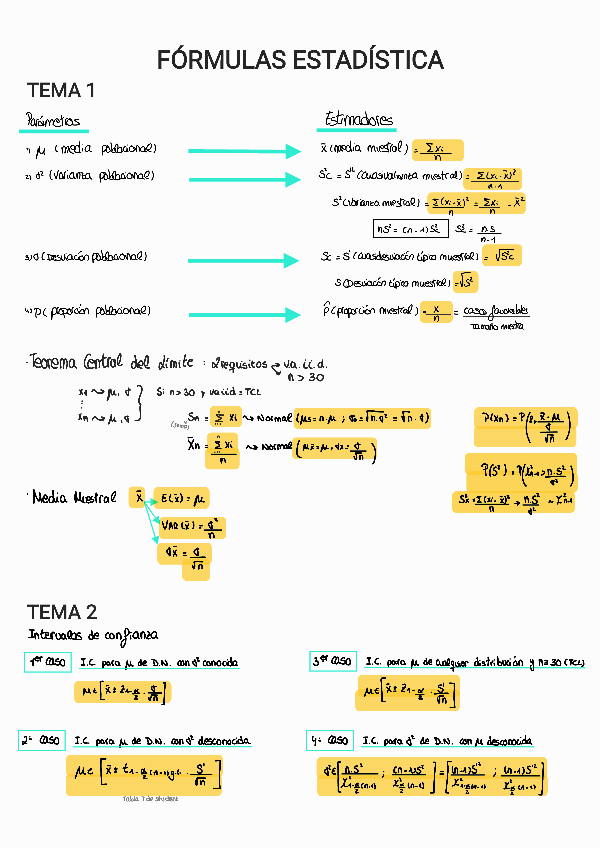 FÓRMULAS ESTADÍSTICA
TEMA 1
Parámetros
Estimadores
1) μ (media poblacional)
x̄ (media muestral) = Σxi / n
2) σ² (varianza poblacional)
S²c = S'² (cuasivarianza muestral) = Σ(xi - x̄)² / n-1
S² (varianza muestral) = Σ(xi - x̄)² / n = Σxi / n - x̄²
nS² = (n-1) S²c
S²c = nS / n-1
3) σ (Desviación poblacional)
Sc = S' (cuasidesviación típica muestral) = √S²c
S (Desviación típica muestral) = √S²
4) p (proporción poblacional)
p̂ (proporción muestral) = x / n = casos favorables / tamaño media
· Teorema Central del Límite : 2 requisitos va.i.i.d.
n > 30
x1 ⤳ μ, σ
Si n > 30 y va iid = TCL
⋮
xn ⤳ μ, σ
Sn = Σ xi ⤳ Normal (μs = n·μ ; σs = √n·σ² = √n · σ)
(suma)
X̄n = Σ xi / n ⤳ Normal (μx̄ = μ, σx̄ = σ / √n)
· Media Muestral x̄
E(x̄) = μ
VAR(x̄) = σ² / n
σx̄ = σ / √n
TEMA 2
Intervalos de confianza
1er CASO I.C. para μ de D.N. con σ² conocida
μ ∈ [x̄ ± Z1-α/2 · σ/√n]
3er CASO I.C. para μ de cualquier distribución y n ≥ 30 (TCL)
μ ∈ [x̄ ± Z1-α/2 · S'/√n]
2º CASO I.C. para μ de D.N. con σ² desconocida
μ ∈ [x̄ ± t1-α/2 (n-1) g.l. · S'/√n]
Tabla T de student
4º CASO I.C. para σ² de D.N. con μ desconocida
σ² ∈ [n·S² / χ²1-α/2 (n-1) ; (n-1)S'² / χ²α/2 (n-1)] = [(n-1)S'² / χ²1-α/2 (n-1) ; (n-1)S'² / χ²α/2 (n-1)]